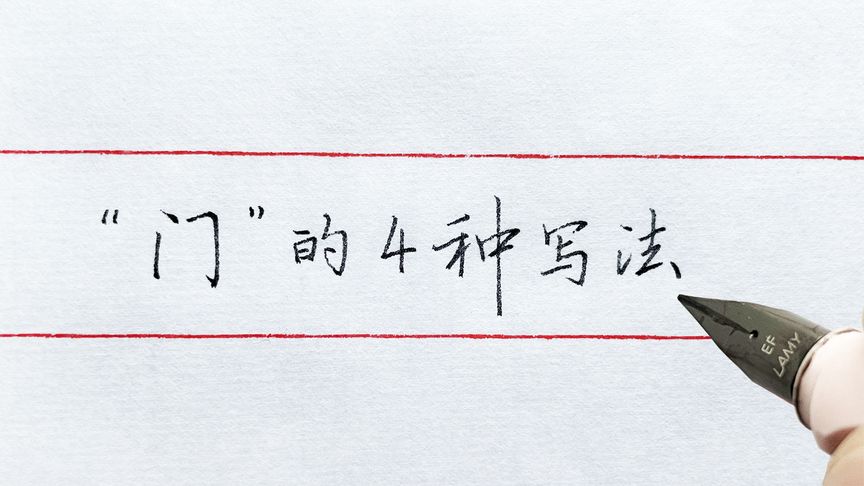 “门”的4种写法
EF
LAMY